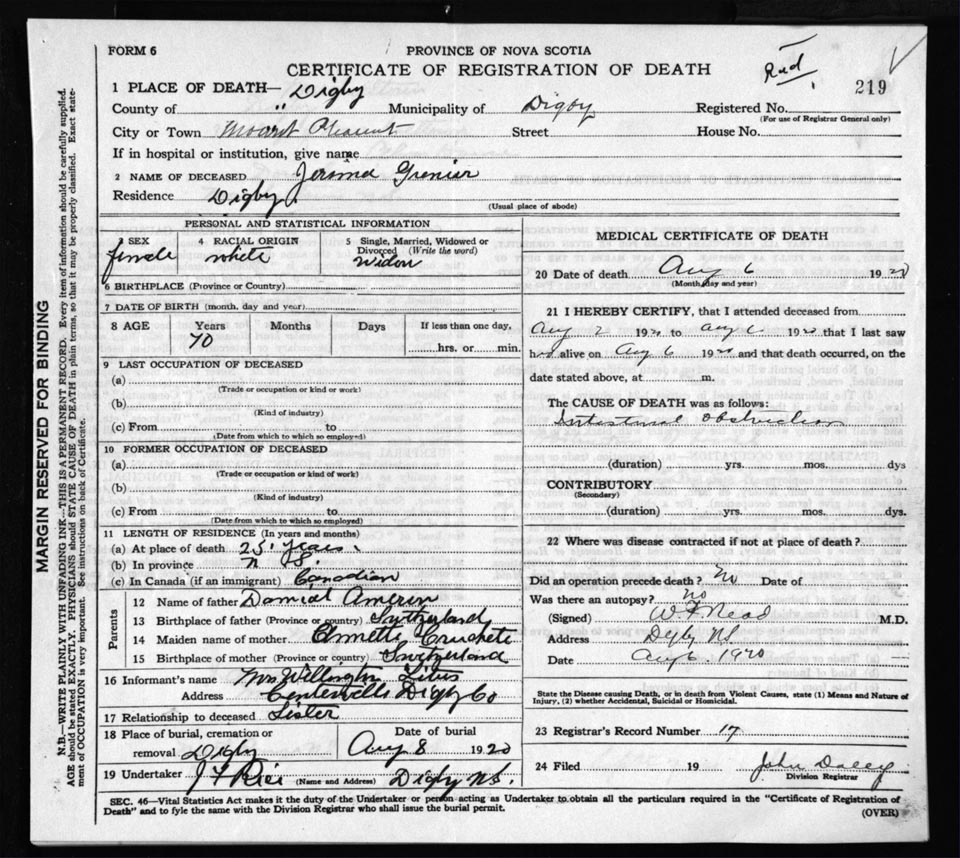 FORM 6
PROVINCE OF NOVA SCOTIA
CERTIFICATE OF REGISTRATION OF DEATH
Rud
219
1 PLACE OF DEATH— Digby
County of " Municipality of Digby Registered No.
(For use of Registrar General only)
City or Town Mount Pleasant Street House No.
If in hospital or institution, give name
2 NAME OF DECEASED Grenier
Residence Digby
(Usual place of abode)
PERSONAL AND STATISTICAL INFORMATION
3 SEX female
4 RACIAL ORIGIN white
5 Single, Married, Widowed or Divorced (Write the word) Widow
6 BIRTHPLACE (Province or Country)
7 DATE OF BIRTH (month, day and year)
8 AGE Years Months Days If less than one day,
70 hrs. or min.
9 LAST OCCUPATION OF DECEASED
(a)
(Trade or occupation or kind or work)
(b)
(Kind of industry)
(c) From to
(Date from which to which so employed)
10 FORMER OCCUPATION OF DECEASED
(a)
(Trade or occupation or kind of work)
(b)
(Kind of industry)
(c) From to
(Date from which to which so employed)
11 LENGTH OF RESIDENCE (In years and months)
(a) At place of death 25 years.
(b) In province N S.
(c) In Canada (if an immigrant) Canadian
Parents
12 Name of father
13 Birthplace of father (Province or country) Switzerland
14 Maiden name of mother
15 Birthplace of mother (Province or country) Switzerland
16 Informant's name Mrs Willington
Address Digby Co
17 Relationship to deceased Sister
18 Place of burial, cremation or removal Digby
Date of burial Aug 8 1920
19 Undertaker J F Rice (Name and Address) Digby N.S.
MEDICAL CERTIFICATE OF DEATH
20 Date of death Aug 6 1920
(Month, day and year)
21 I HEREBY CERTIFY, that I attended deceased from
Aug 2 1920 to Aug 6 1920 that I last saw
her alive on Aug 6 1920 and that death occurred, on the
date stated above, at m.
The CAUSE OF DEATH was as follows:
Intestinal Obstruction
(duration) yrs. mos. dys
CONTRIBUTORY
(Secondary)
(duration) yrs. mos. dys.
22 Where was disease contracted if not at place of death?
Did an operation precede death? No Date of
Was there an autopsy? no
(Signed) M.D.
Address Digby NS
Date Aug 6. 1920
State the Disease causing Death, or in death from Violent Causes, state (1) Means and Nature of
Injury, (2) whether Accidental, Suicidal or Homicidal.
23 Registrar's Record Number 17
24 Filed 19 John Daley
Division Registrar
SEC. 46—Vital Statistics Act makes it the duty of the Undertaker or person acting as Undertaker to obtain all the particulars required in the "Certificate of Registration of
Death" and to fyle the same with the Division Registrar who shall issue the burial permit.
(OVER)
MARGIN RESERVED FOR BINDING
N.B.—WRITE PLAINLY WITH UNFADING INK—THIS IS A PERMANENT RECORD. Every item of information should be carefully supplied.
AGE should be stated EXACTLY. PHYSICIANS should STATE CAUSE OF DEATH in plain terms, so that it may be properly classified. Exact state-
ment of OCCUPATION is very important. See instructions on back of Certificate.